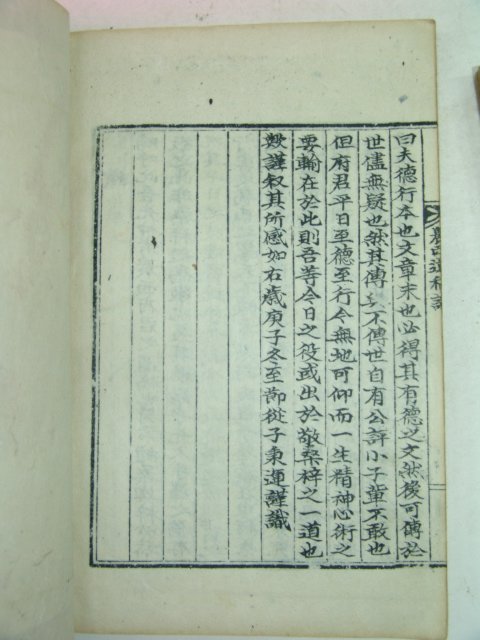 曰夫德行本也文章末也必得其有德之文然後可傳於
世儘無疑也然其傳 不傳世自有公評小子輩不敢也
但府君平日至德至行今無地可仰而一生精神心術之
要輪在於此則吾等今日之役或出於敬桑梓之一道也
歟謹叙其所感如右歲庚子冬至節從子東運謹識
遺稿